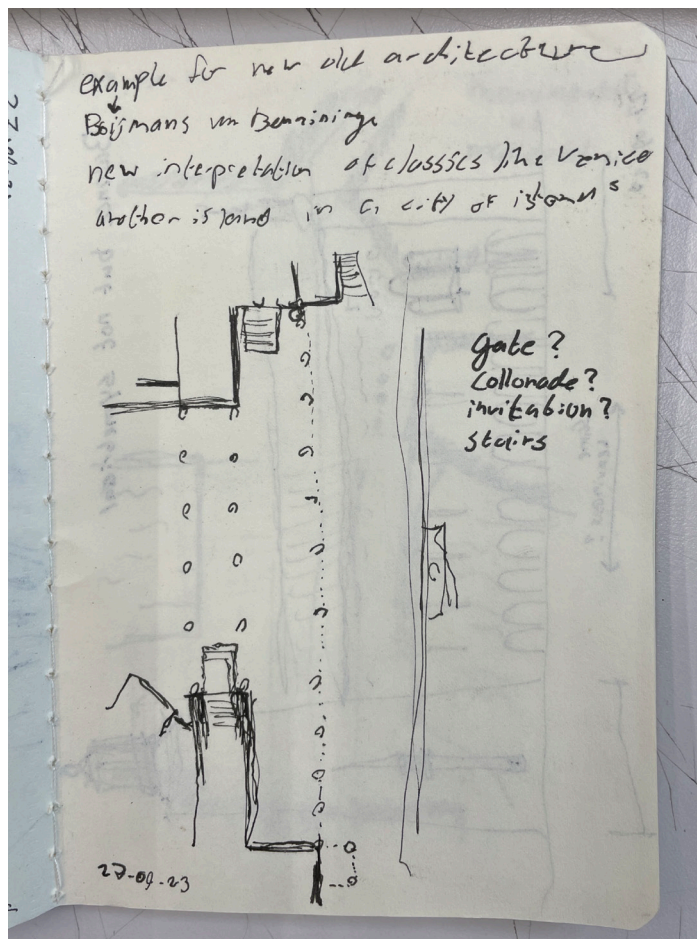 example for new old architecture
Boijmans van Beuningen
new interpretation of classics like Venice
another island in a city of islands
Gate?
Collonade?
invitation?
stairs
27-09-23